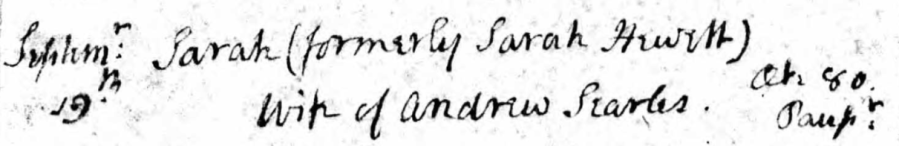 Septemr: Sarah (formerly Sarah Hewett)
19th Wife of Andrew Searles. Æt. 80.
Paupr: